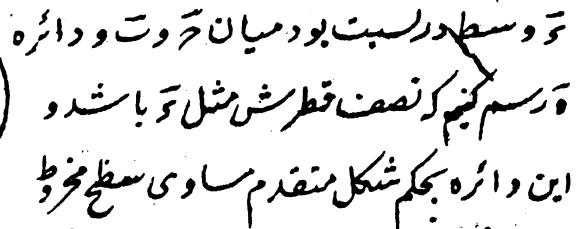 وسط در نسبت بود میان و دائره
رسم کنیم که نصف قطرش مثل باشد و
این دائره بحکم شکل متقدم مساوی سطح مخروط